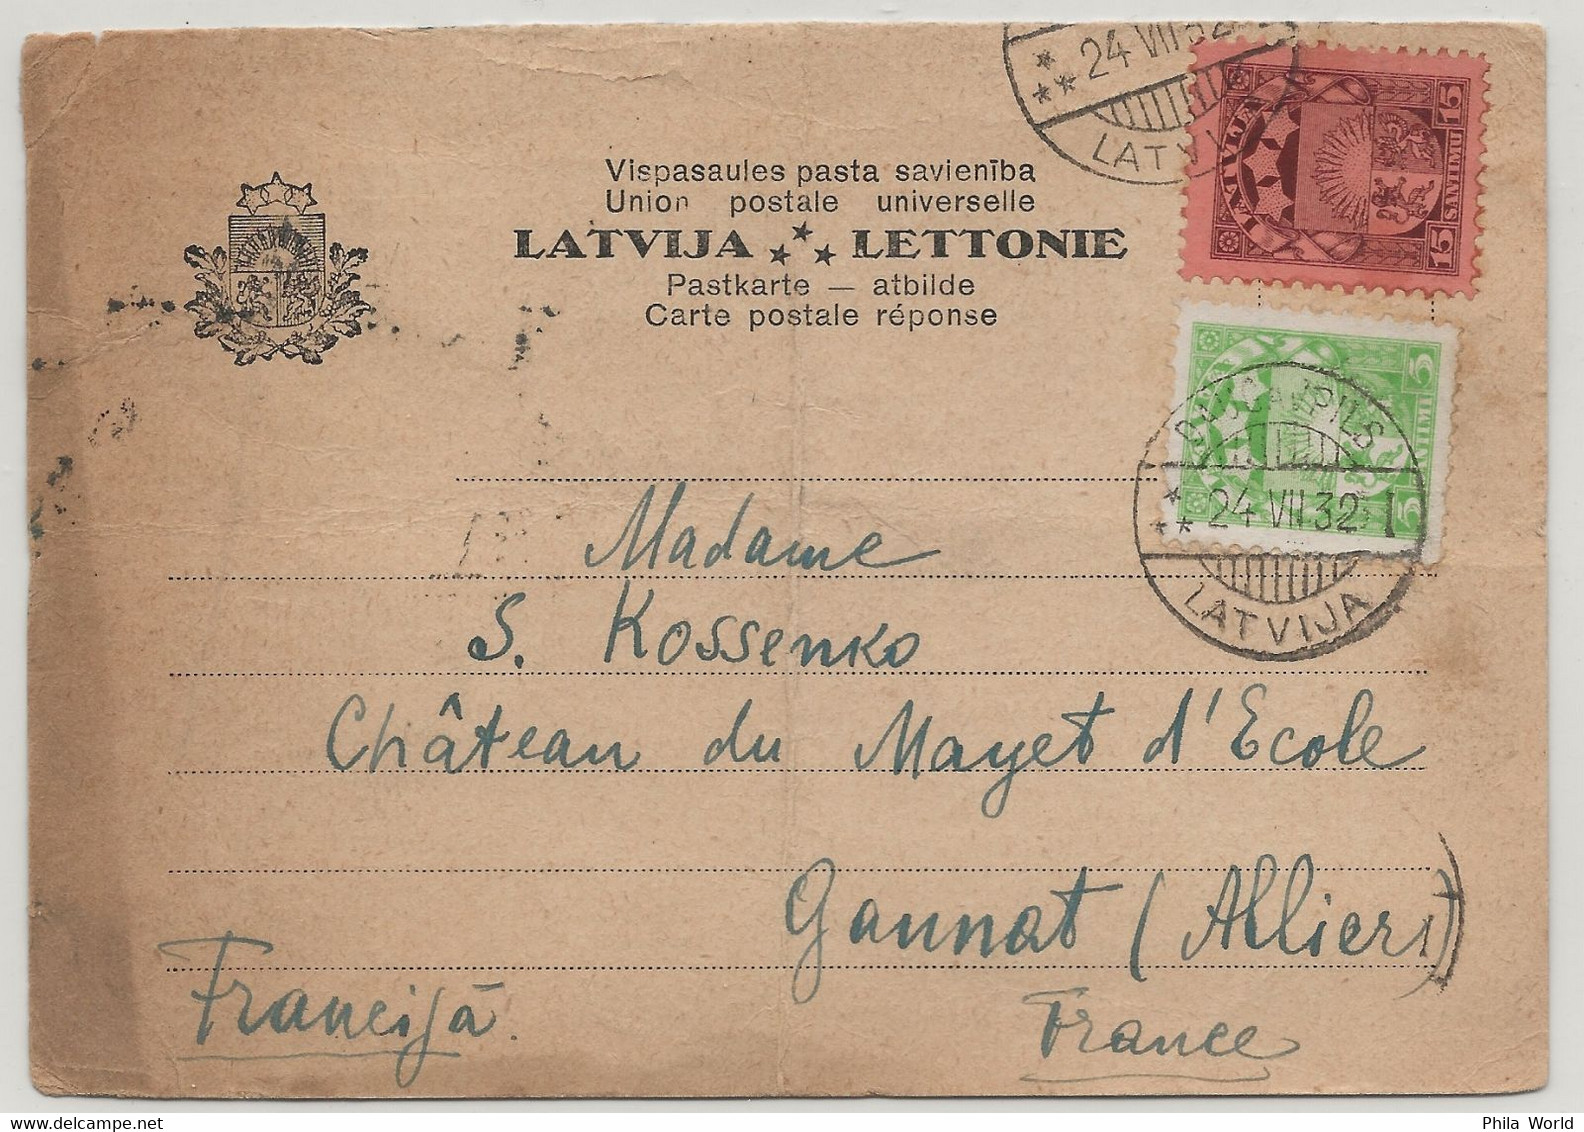 24 VII 32
LATVIJA
Vispasaules pasta savienība
Union postale universelle
LATVIJA LETTONIE
Pastkarte — atbilde
Carte postale réponse
LATVIJA
15 SANTIMU 15
5 SANTIMI 5
DAUGAVPILS
24 VII 32 I
LATVIJA
Madame
S. Kossenko
Château du Mayet d'Ecole
Gannat (Allier)
Francijā.
France
Phila World